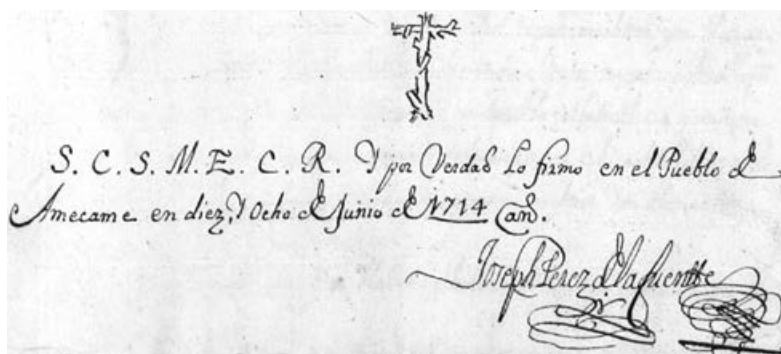 S. C. S. M. E. C. R. Y por Verdad Lo firmo en el Pueblo de
Amecame en diez, Y Ocho de Junio de 1714 añs.
Joseph Perez de la fuentte